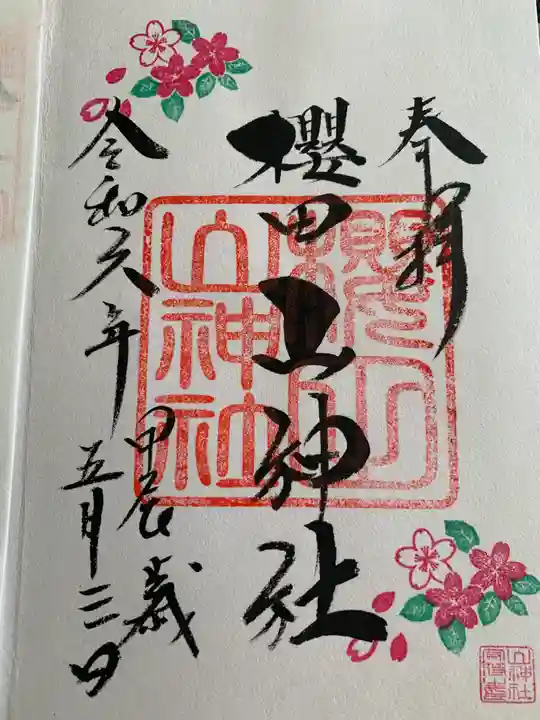 奉拝
櫻田山神社
令和六年
甲辰歳
五月三日
山神社